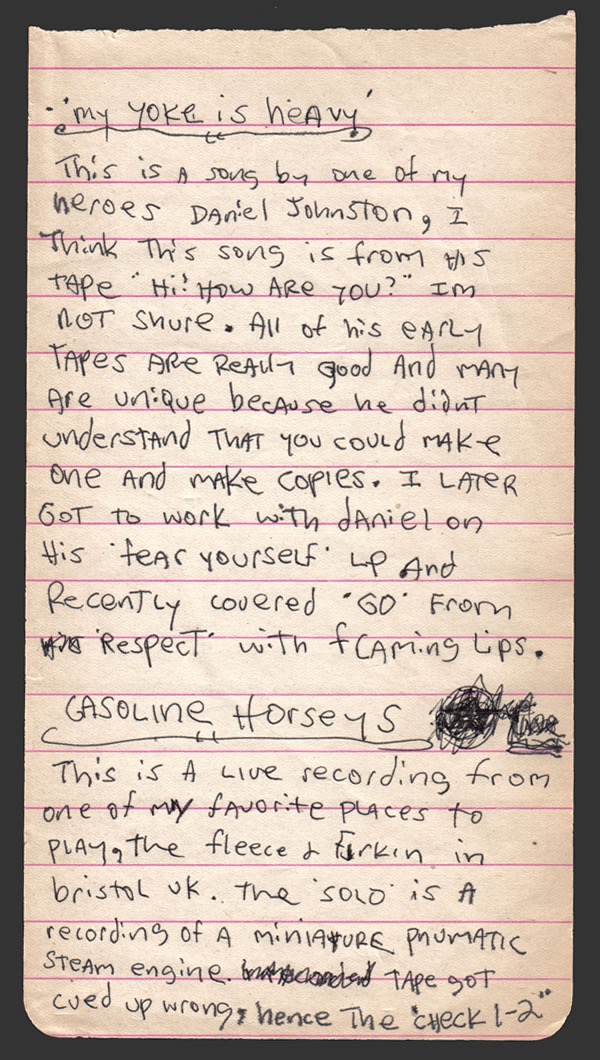 'my YOKE is HEAVY'
This is A song by one of my
heroes DANiel Johnston, I
Think This song is from His
TAPE "Hi! How ARE YOU?" Im
NOT Shure. All of his EARLY
TAPES ARE REALLY good And MANY
Are unique because he didnt
understand THAT you could MAKe
one And MAKE copies. I LATER
GOT TO work with dAniel on
His 'fear yourself' Lp And
Recently covered 'GO' From
'Respect' with fLAming Lips.
GASOLINE HorseyS
This is A Live recording from
one of my fAVorite places to
PLAY, The fleece & Firkin in
bristol UK. The 'SOLO' is A
recording of A miniATURE pnuMATIC
STEAM engine. TAPE got
cued up wrong, hence The "CHECK 1-2"